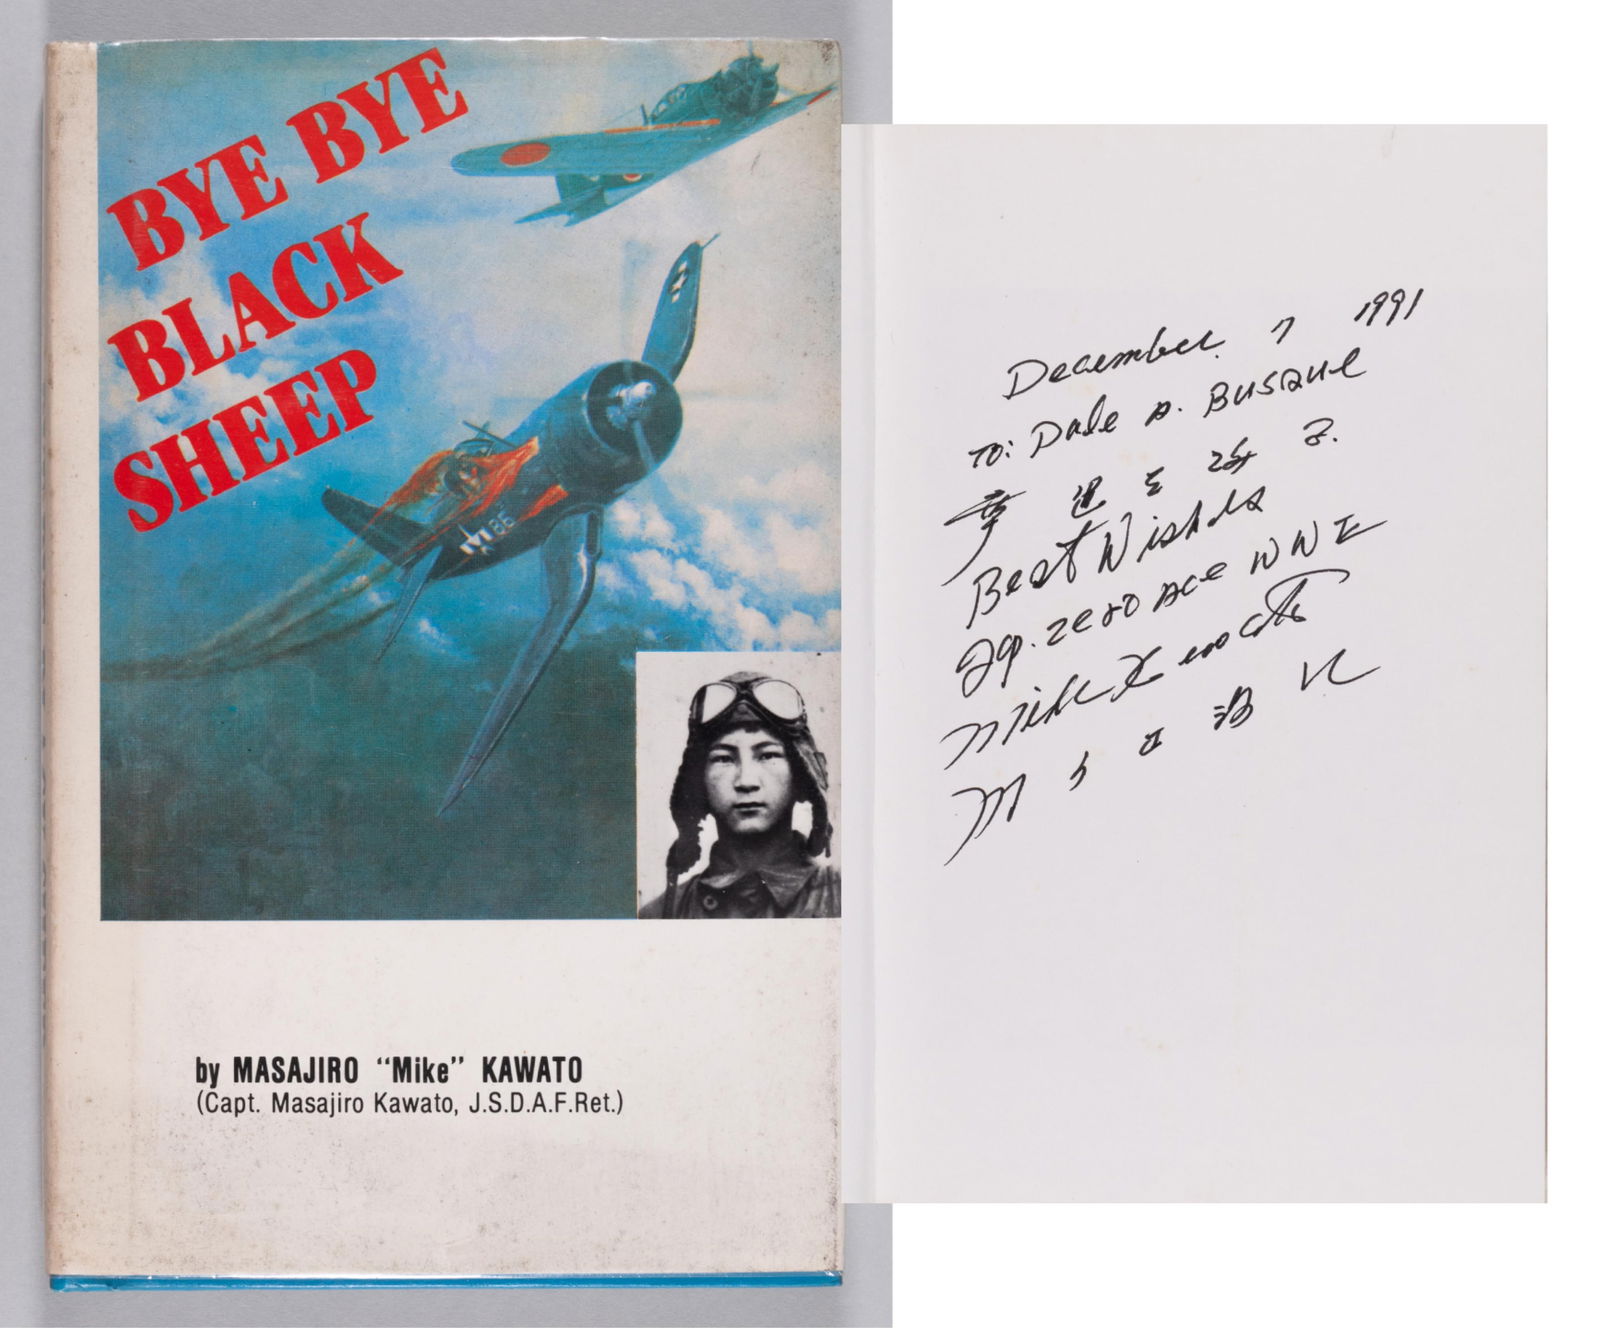 BYE BYE
BLACK
SHEEP
86
by MASAJIRO “Mike” KAWATO
(Capt. Masajiro Kawato, J.S.D.A.F.Ret.)
December 7 1991
TO: Dale A. Busque
Best Wishes
Jap. zero Ace WW II
Mike Kawato